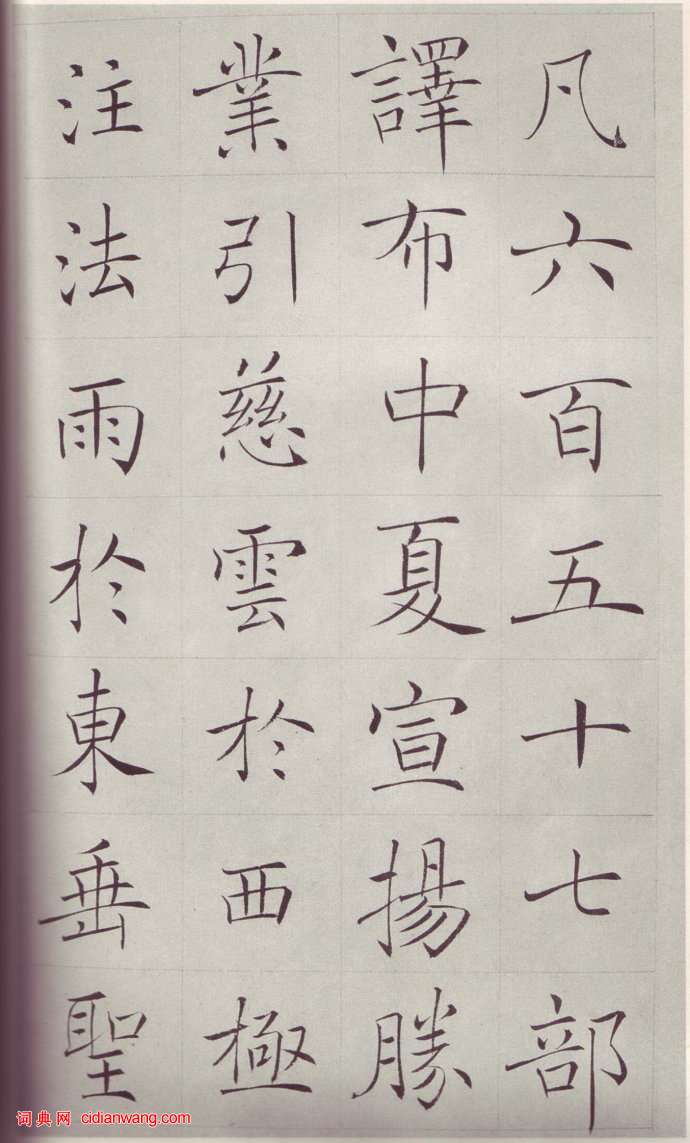 凡六百五十七部
譯布中夏宣揚勝
業引慈雲於西極
注法雨於東垂聖
词典网 cidianwang.com